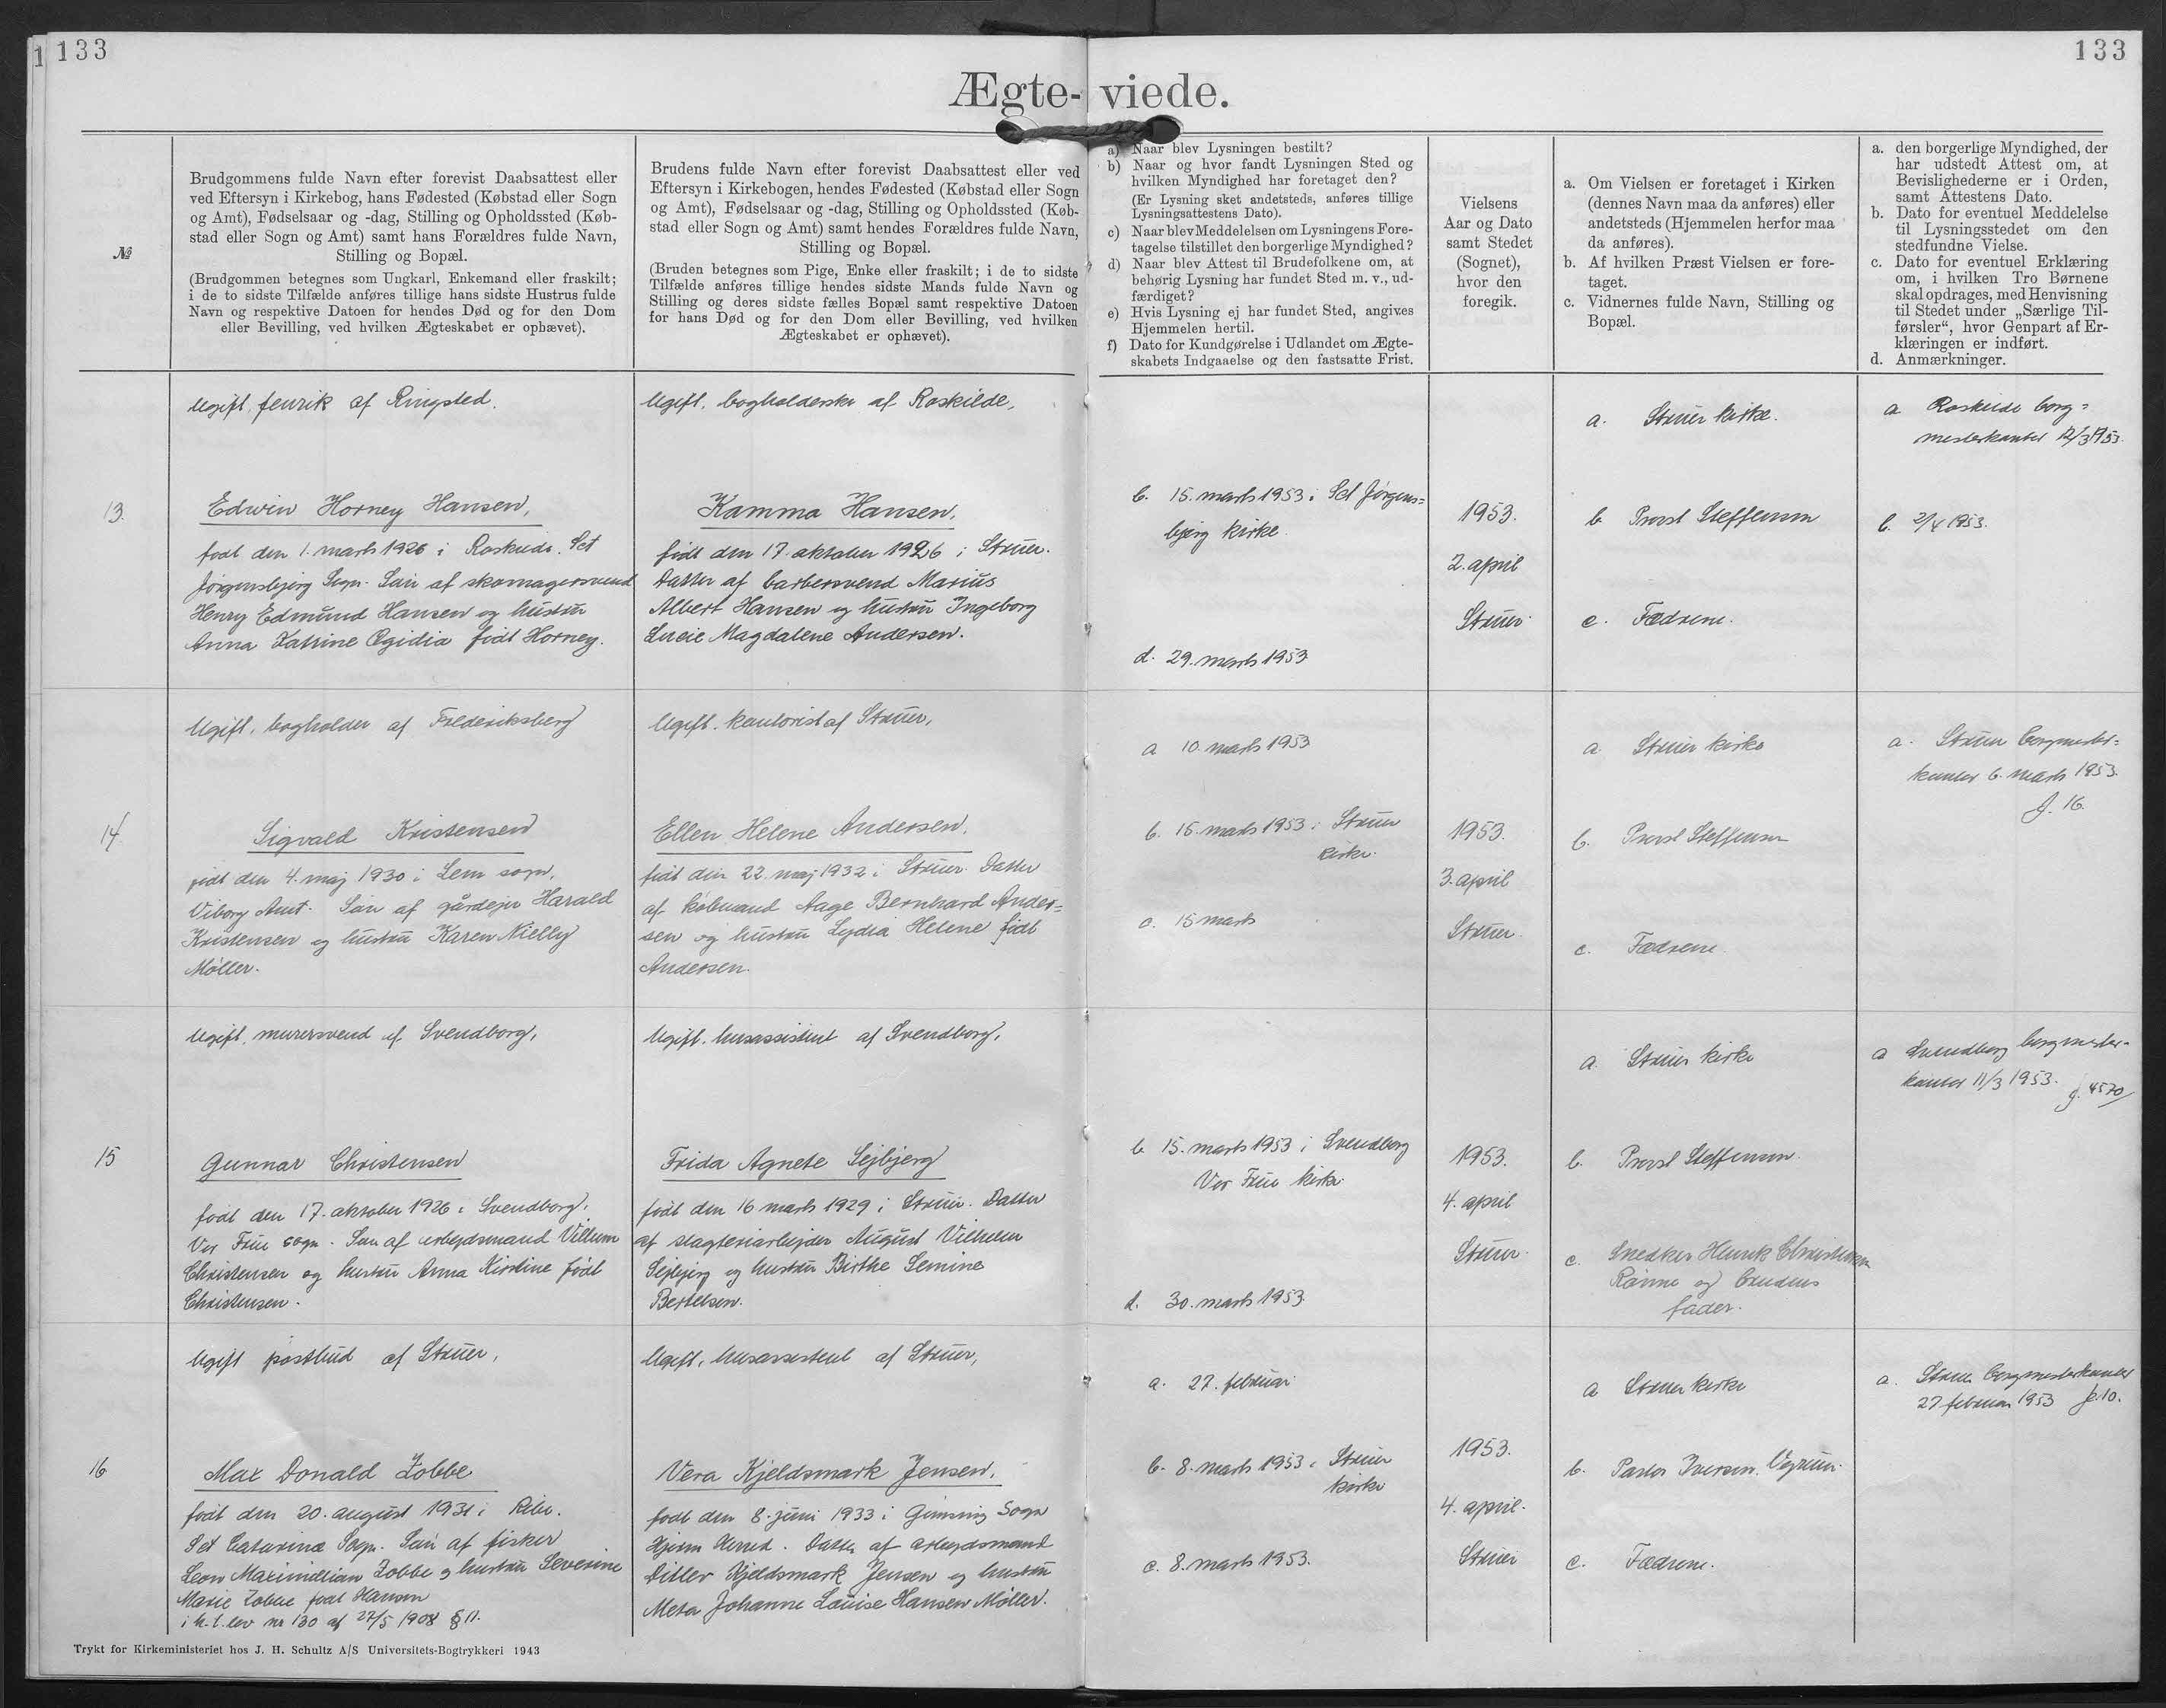 133
133
Ægte- viede.
№
Brudgommens fulde Navn efter forevist Daabsattest eller
ved Eftersyn i Kirkebog, hans Fødested (Købstad eller Sogn
og Amt), Fødselsaar og -dag, Stilling og Opholdssted (Køb-
stad eller Sogn og Amt) samt hans Forældres fulde Navn,
Stilling og Bopæl.
(Brudgommen betegnes som Ungkarl, Enkemand eller fraskilt;
i de to sidste Tilfælde anføres tillige hans sidste Hustrus fulde
Navn og respektive Datoen for hendes Død og for den Dom
eller Bevilling, ved hvilken Ægteskabet er ophævet).
Brudens fulde Navn efter forevist Daabsattest eller ved
Eftersyn i Kirkebogen, hendes Fødested (Købstad eller Sogn
og Amt), Fødselsaar og -dag, Stilling og Opholdssted (Køb-
stad eller Sogn og Amt) samt hendes Forældres fulde Navn,
Stilling og Bopæl.
(Bruden betegnes som Pige, Enke eller fraskilt; i de to sidste
Tilfælde anføres tillige hendes sidste Mands fulde Navn og
Stilling og deres sidste fælles Bopæl samt respektive Datoen
for hans Død og for den Dom eller Bevilling, ved hvilken
Ægteskabet er ophævet).
a) Naar blev Lysningen bestilt?
b) Naar og hvor fandt Lysningen Sted og
hvilken Myndighed har foretaget den?
(Er Lysning sket andetsteds, anføres tillige
Lysningsattestens Dato).
c) Naar blev Meddelelsen om Lysningens Fore-
tagelse tilstillet den borgerlige Myndighed?
d) Naar blev Attest til Brudefolkene om, at
behørig Lysning har fundet Sted m. v., ud-
færdiget?
e) Hvis Lysning ej har fundet Sted, angives
Hjemmelen hertil.
f) Dato for Kundgørelse i Udlandet om Ægte-
skabets Indgaaelse og den fastsatte Frist.
Vielsens
Aar og Dato
samt Stedet
(Sognet),
hvor den
foregik.
a. Om Vielsen er foretaget i Kirken
(dennes Navn maa da anføres) eller
andetsteds (Hjemmelen herfor maa
da anføres).
b. Af hvilken Præst Vielsen er fore-
taget.
c. Vidnernes fulde Navn, Stilling og
Bopæl.
a. den borgerlige Myndighed, der
har udstedt Attest om, at
Bevislighederne er i Orden,
samt Attestens Dato.
b. Dato for eventuel Meddelelse
til Lysningsstedet om den
stedfundne Vielse.
c. Dato for eventuel Erklæring
om, i hvilken Tro Børnene
skal opdrages, med Henvisning
til Stedet under „Særlige Til-
førsler“, hvor Genpart af Er-
klæringen er indført.
d. Anmærkninger.
13.
Ugift, fenrik af Ringsted.
Edwin Horney Hansen,
født den 1. marts 1926 i Roskilde. Sct
Jørgensbjerg Sogn. Søn af skomagersvend
Henry Edmund Hansen og hustru
Anna Katrine Ægidia født Horney.
Ugift, bogholderske af Roskilde,
Kamma Hansen,
født den 17. oktober 1926 i Struer.
Datter af barbersvend Marius
Albert Hansen og hustru Ingeborg
Lucie Magdalene Andersen.
b. 15. marts 1953 i Sct Jørgens=
bjerg kirke
d. 29. marts 1953
1953.
2. april
Struer
a. Struer kirke.
b. Provst Steffensen
c. Fædrene.
a Roskilde borg=
mesterkontor 12/3 1953.
b. 2/4 1953.
14
Ugift, bogholder af Frederiksberg
Sigvald Kristensen
født den 4. maj 1930 i Lem sogn,
Viborg Amt. Søn af gårdejer Harald
Kristensen og hustru Karen Nielly
Møller.
Ugift. kontorist af Struer,
Ellen Helene Andersen,
født den 22. maj 1932 i Struer. Datter
af købmand Aage Bernhard Ander=
sen og hustru Lydia Helene født
Andersen.
a 10. marts 1953
b. 15. marts 1953 i Struer
kirke.
c. 15 marts
1953.
3. april
Struer
a Struer kirke
b. Provst Steffensen
c. Fædrene.
a. Struer borgmester=
kontor 6. marts 1953.
J. 16.
15
Ugift, murersvend af Svendborg,
Gunnar Christensen
født den 17. oktober 1926 i Svendborg,
Vor Frue sogn. Søn af arbejdsmand Villum
Christensen og hustru Anna Kirstine født
Christensen.
Ugift. husassistent af Svendborg,
Frida Agnete Sejbjerg
født den 16 marts 1929 i Struer. Datter
af slagteriarbejder August Vilhelm
Sejbjerg og hustru Birthe Semine
Bertelsen.
b 15. marts 1953 i Svendborg
Vor Frue kirke.
d. 30. marts 1953.
1953.
4. april
Struer
a. Struer kirke
b. Provst Steffensen.
c. Snedker Henrik Christensen
Rønne og brudens
fader.
a Svendborg borgmester-
kontor 11/3 1953. J. 4570
16
Ugift postbud af Struer,
Max Donald Lobbe
født den 20. august 1931 i Ribe.
Sct Catarinæ Sogn. Søn af fisker
Leon Maximillian Lobbe og hustru Severine
Marie Lobbe født Hansen
i h. t. lov nr 130 af 27/5 1908 § 11.
Ugift, husassistent af Struer,
Vera Kjeldsmark Jensen,
født den 8. juni 1933 i Gimsing Sogn
Hjerm Herred. Datter af arbejdsmand
Ditlev Kjeldsmark Jensen og hustru
Meta Johanne Louise Hansen Møller.
a. 27. februar
b. 8. marts 1953 i Struer
kirke
c. 8. marts 1953.
1953.
4. april.
Struer
a Struer kirke
b. Pastor Iversen, Vejrum.
c. Fædrene.
a. Struer borgmesterkontor
27 februar 1953 J. 10.
Trykt for Kirkeministeriet hos J. H. Schultz A/S Universitets-Bogtrykkeri 1943